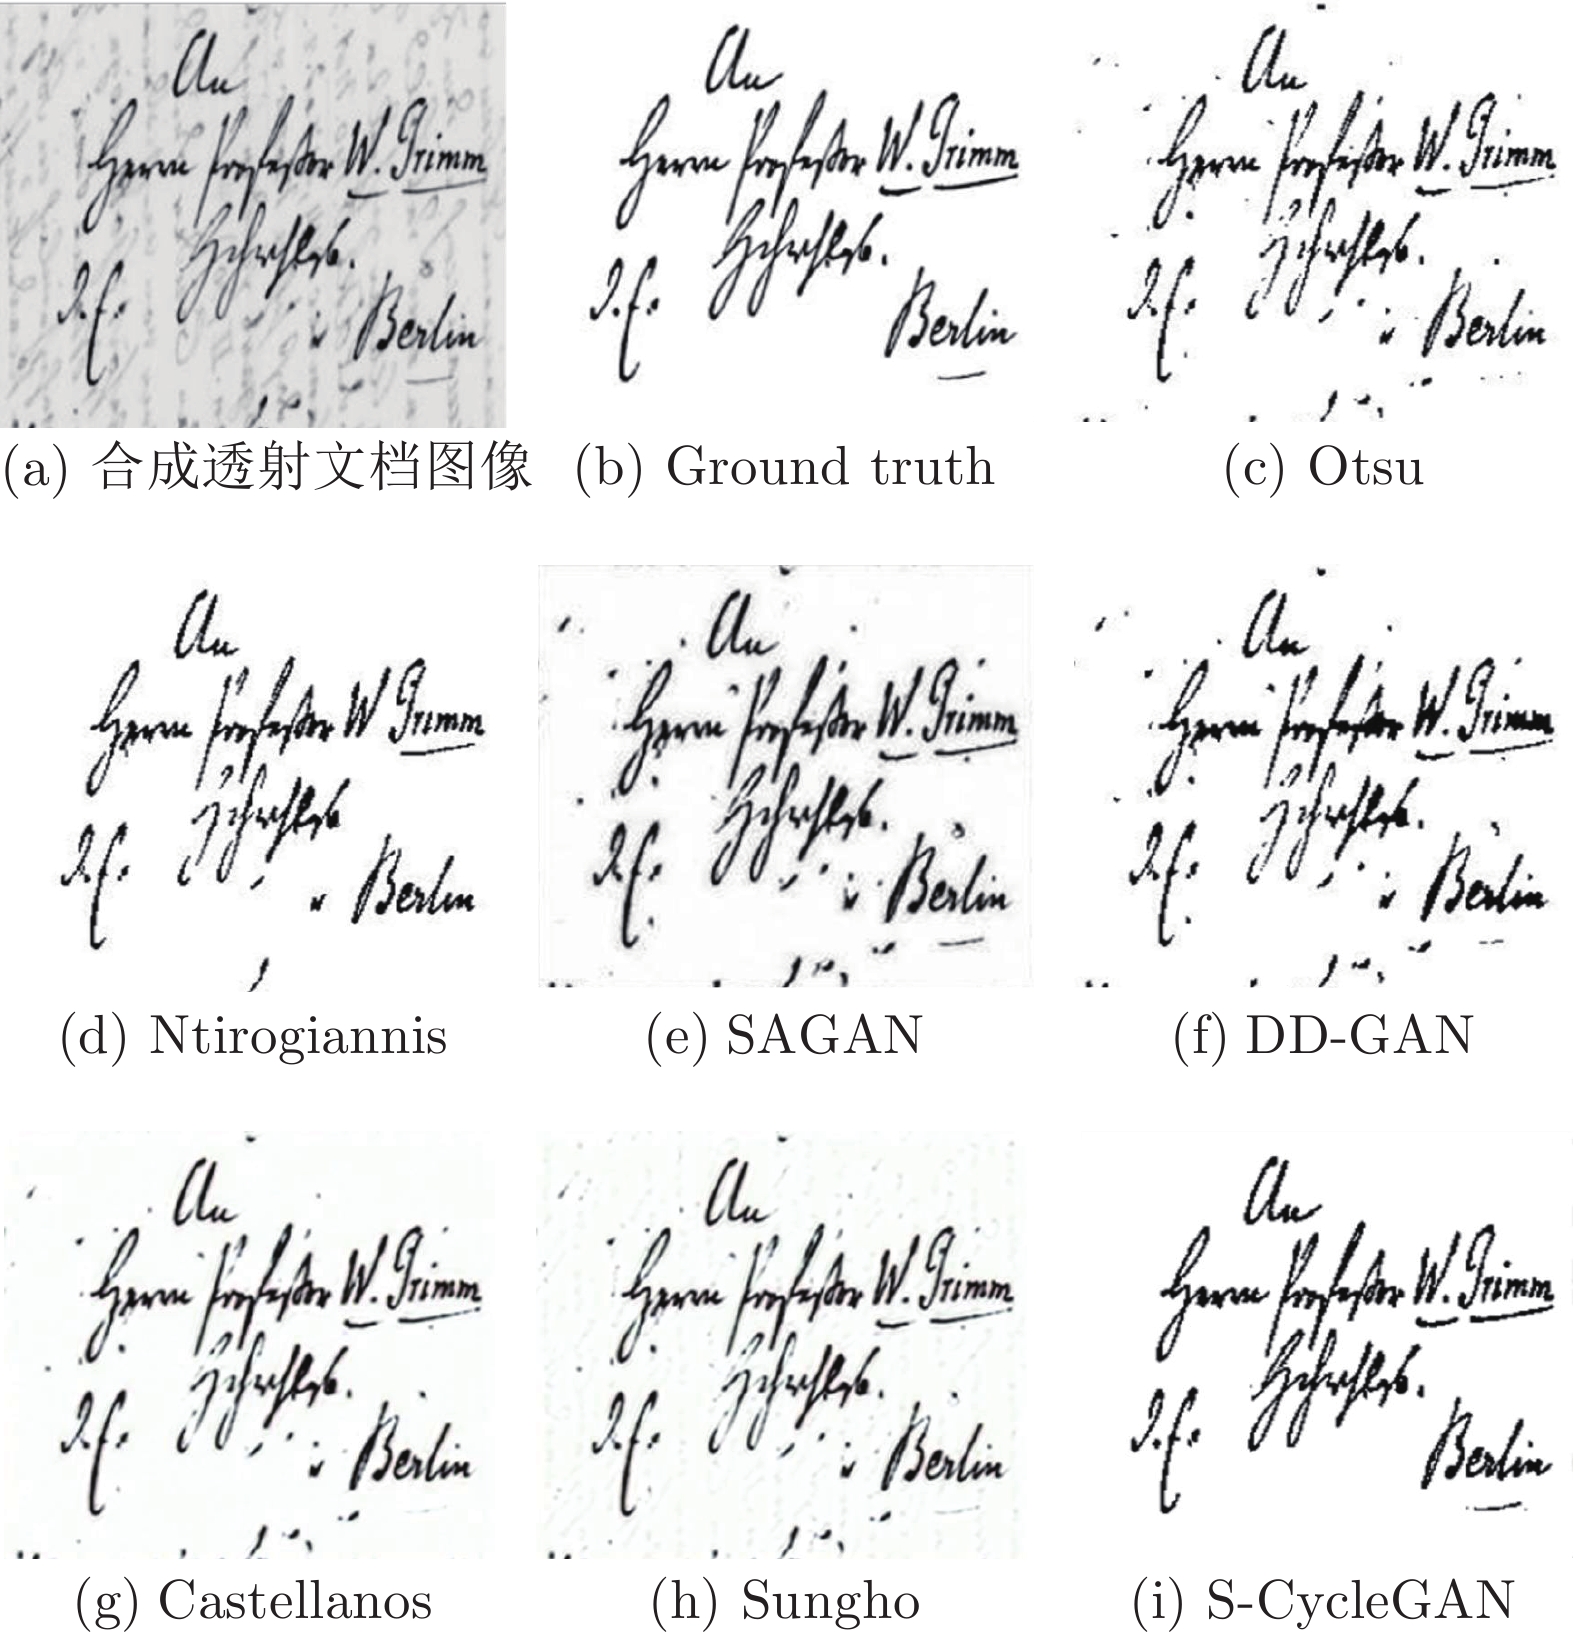 An
Herrn Professor W. Grimm
Berlin
An
Herrn Professor W. Grimm
Berlin
An
Herrn Professor W. Grimm
Berlin
(a) 合成透射文档图像 (b) Ground truth (c) Otsu
An
Herrn Professor W Grimm
Berlin
An
Herrn Professor W. Grimm
Berlin
An
Herrn Professor W. Grimm
Berlin
(d) Ntirogiannis (e) SAGAN (f) DD-GAN
An
Herrn Professor W. Grimm
Berlin
An
Herrn Professor W. Grimm
Berlin
An
Herrn Professor W. Grimm
Berlin
(g) Castellanos (h) Sungho (i) S-CycleGAN